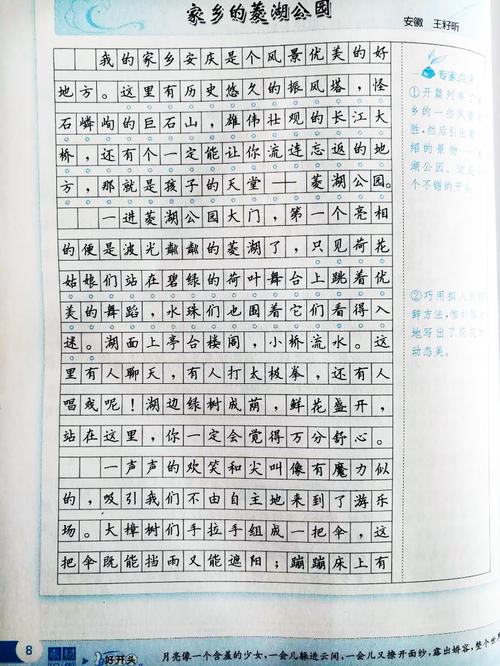 家乡的菱湖公园
安徽 王籽昕
我的家乡安庆是个风景优美的好
地方。这里有历史悠久的振风塔，怪
石嶙峋的巨石山，雄伟壮观的长江大
桥，还有个一定能让你流连忘返的地
方，那就是孩子的天堂——菱湖公园。
一进菱湖公园大门，第一个亮相
的便是波光粼粼的菱湖了，只见荷花
姑娘们站在碧绿的荷叶舞台上跳着优
美的舞蹈，水珠们也围着它们看得入
迷。湖面上亭台楼阁，小桥流水。这
里有人聊天，有人打太极拳，还有人
唱戏呢！湖边绿树成荫，鲜花盛开，
站在这里，你一定会觉得万分舒心。
一声声的欢笑和尖叫像有魔力似
的，吸引我们不由自主地来到了游乐
场。大樟树们手拉手组成一把伞，这
把伞既能挡雨又能遮阳；蹦蹦床上有
专家点评
①开篇列举了家
乡的一些风景名
胜，然后引出要介
绍的景物——菱
湖公园。这是一
个不错的开头。
②巧用拟人的修
辞方法，
地写出了荷花的
动态美。
8
素材
好开头
月亮像一个含羞的少女，一会儿躲进云间，一会儿又撩开面纱，露出娇容，整个世